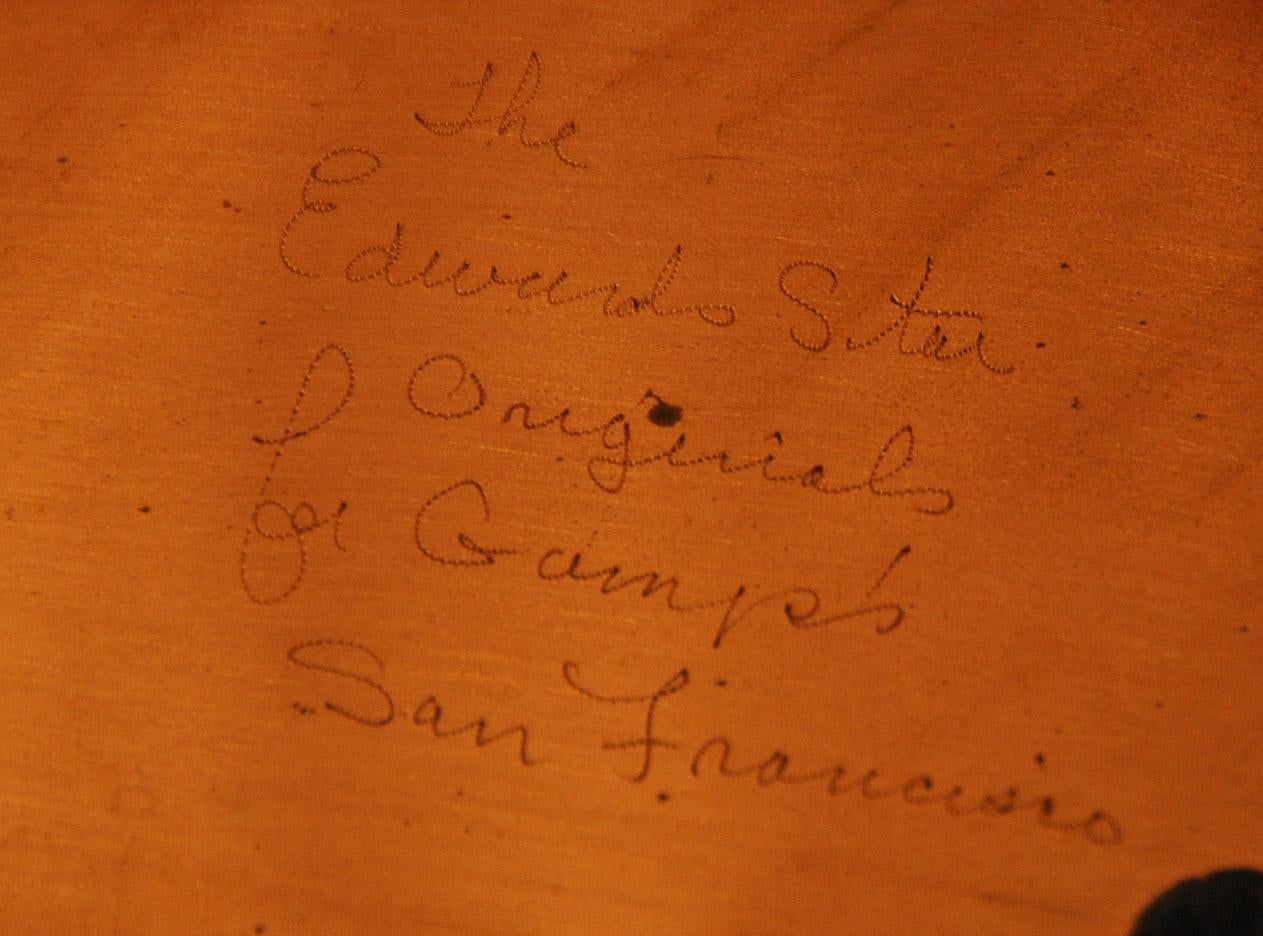 The
Edwards Sitar
Originals
for Gump's
San Francisco